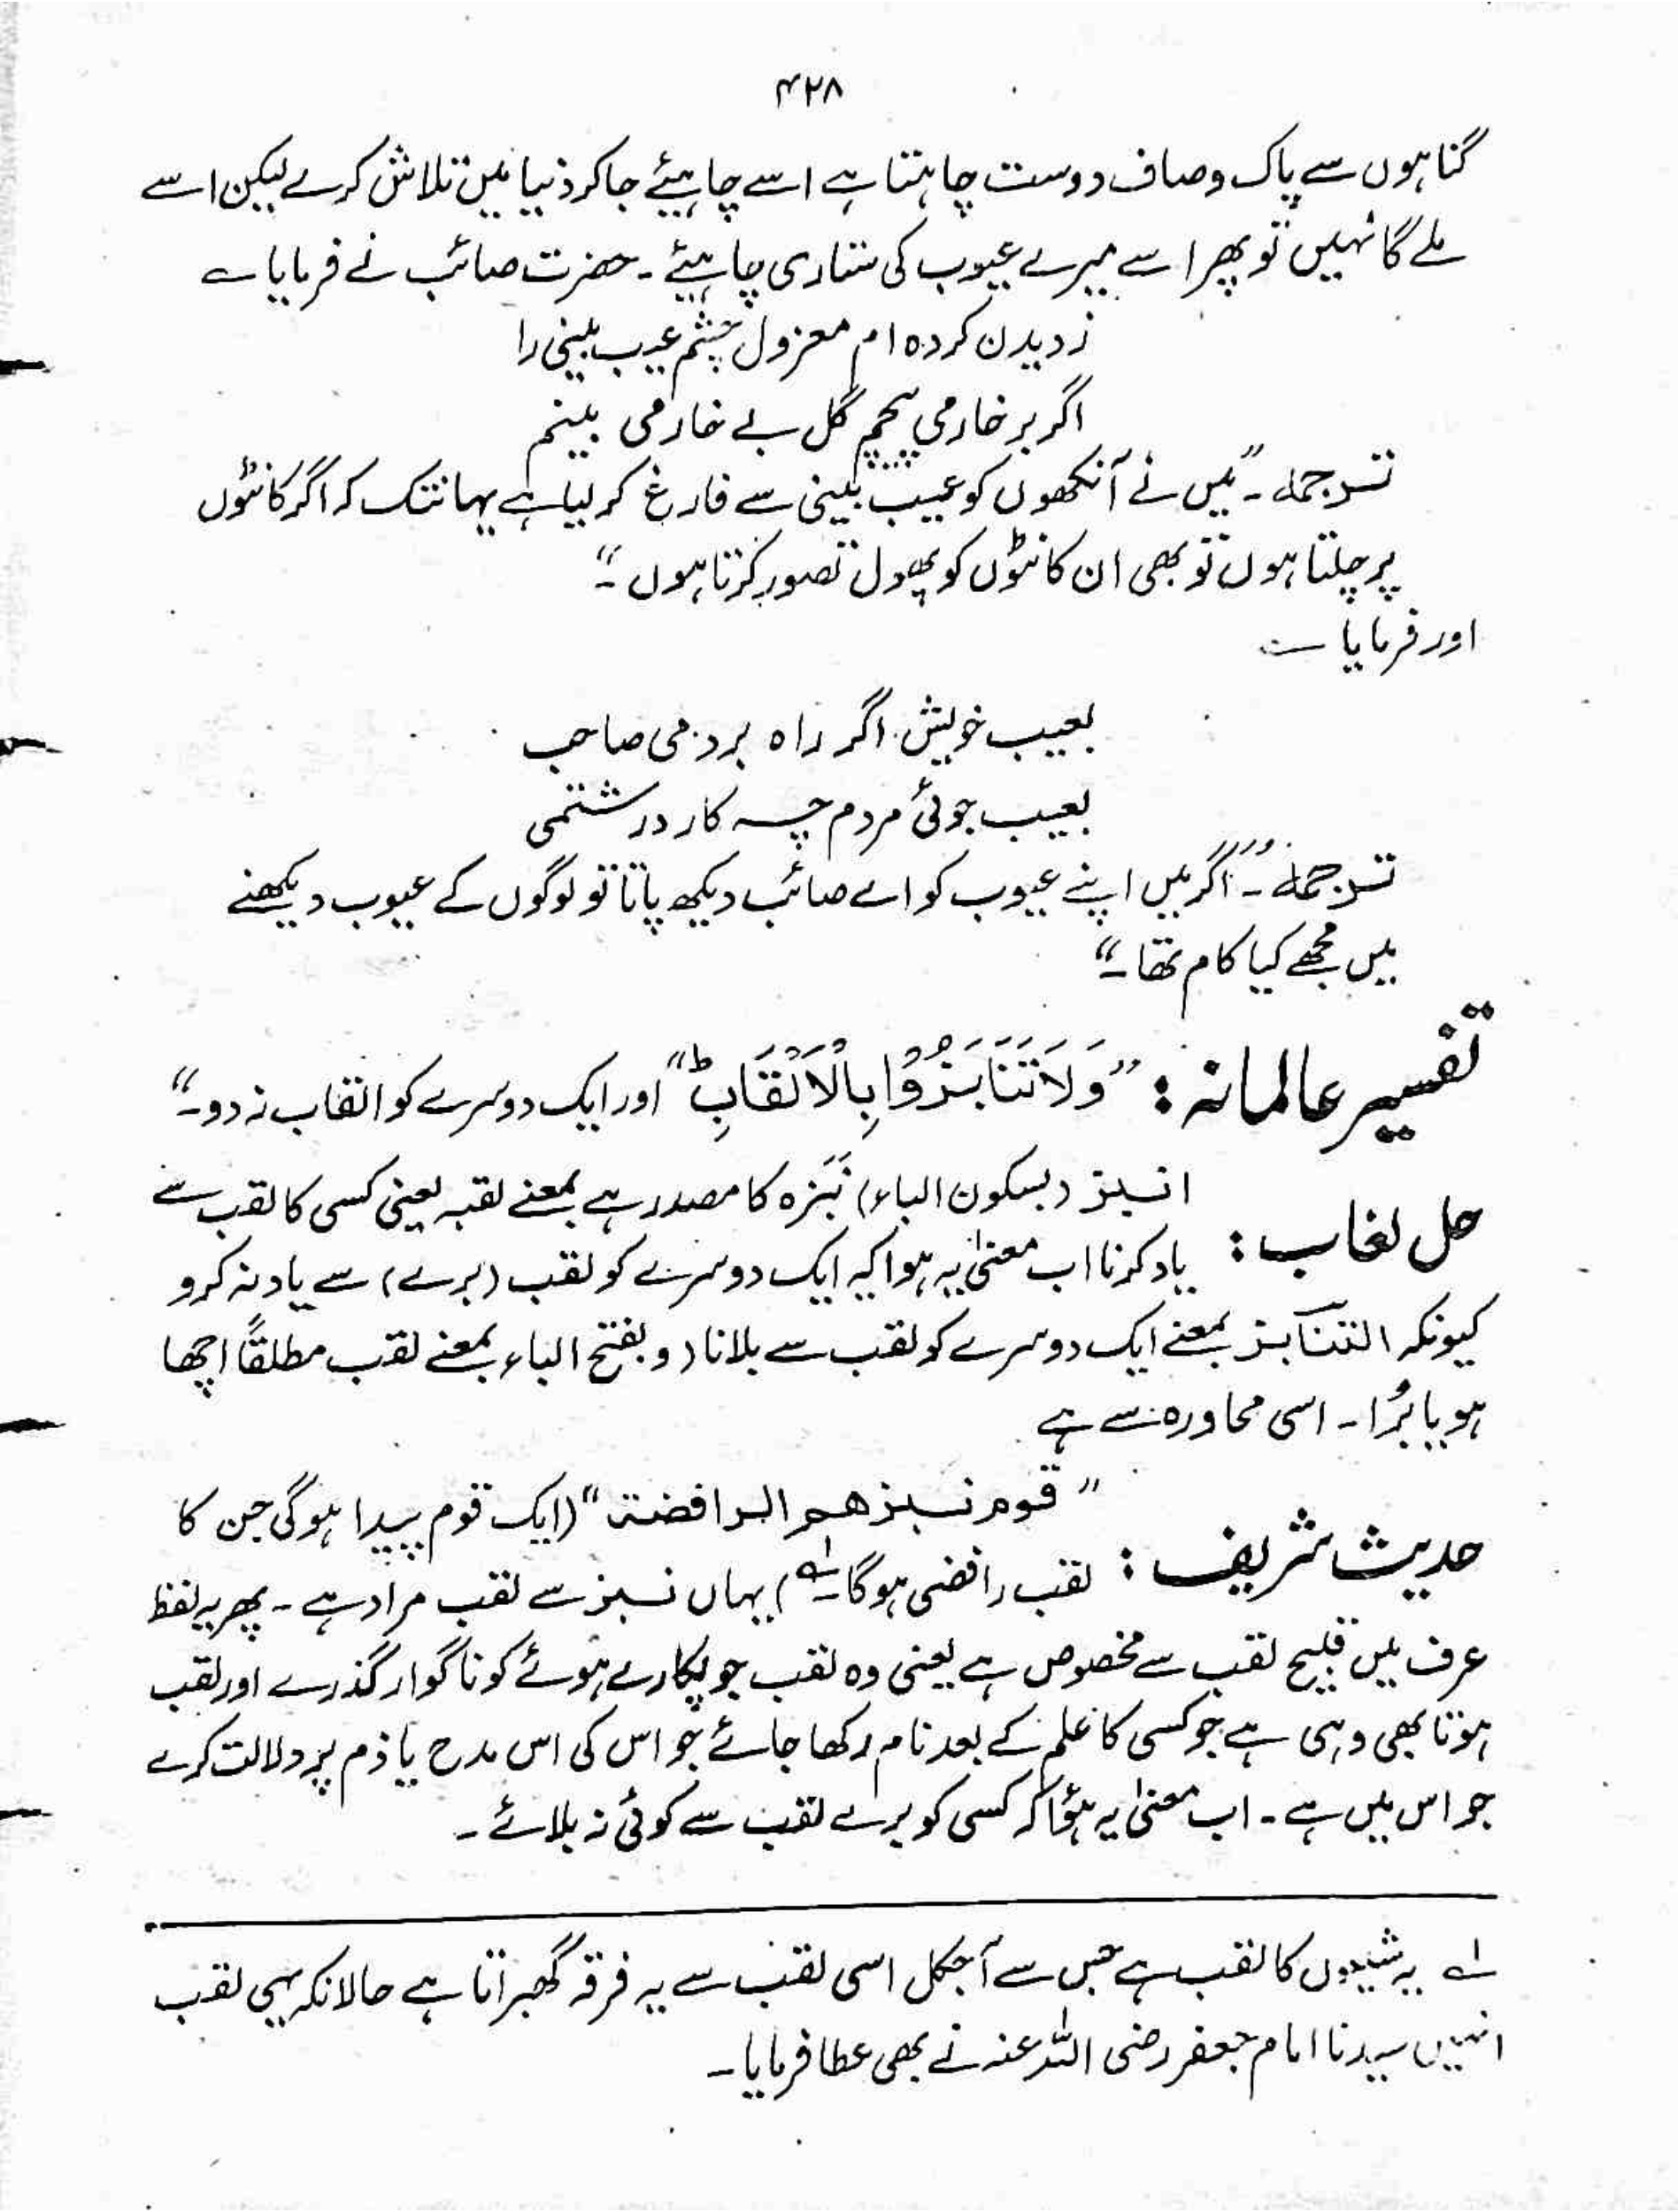 ۴۲۸
گناہوں سے پاک وصاف دوست چاہتا ہے اسے چاہیئے جاکر دنیا میں تلاش کرے لیکن اسے
ملے گا نہیں تو پھر اسے میرے عیوب کی ستاری چاہیئے ۔ حضرت صائب نے فرمایا ؎
زدیدن کردہ ام معزول چشم عیب بینی را
اگر بر خار می پیچم گل بے خار می بینم
ترجمہ ۔ "میں نے آنکھوں کو عیب بینی سے فارغ کر لیا ہے یہانتک کہ اگر کانٹوں
پر چلتا ہوں تو بھی ان کانٹوں کو پھول تصور کرتا ہوں ۔"
اور فرمایا ؎
بعیب خویش اگر راہ بردمی صاحب
بعیب جوئی مردم چہ کار درشتمی
ترجمہ ۔ "اگر میں اپنے عیوب کو اے صائب دیکھ پاتا تو لوگوں کے عیوب دیکھنے
میں مجھے کیا کام تھا ۔"
تفسیر عالمانہ : "وَلَا تَنَابَزُوْا بِالْاَلْقَابِ ؕ" اور ایک دوسرے کو القاب نہ دو ۔"
حل لغات : النبز (بسکون الباء) نَبَزہ کا مصدر ہے بمعنے لقبہ یعنی کسی کا لقب سے
یاد کرنا اب معنیٰ یہ ہوا کہ ایک دوسرے کو لقب (برے) سے یاد نہ کرو
کیونکہ التنابز بمعنے ایک دوسرے کو لقب سے بلانا (و بفتح الباء بمعنے لقب مطلقاً اچھا
ہو یا بُرا ۔ اسی محاورہ سے ہے
حدیث شریف : "قوم نبزھم الرافضۃ" (ایک قوم پیدا ہوگی جن کا
لقب رافضی ہوگا ۔ لہ) یہاں نبز سے لقب مراد ہے ۔ پھر یہ لفظ
عرف میں قبیح لقب سے مخصوص ہے یعنی وہ لقب جو پکارے ہوئے کو ناگوار گذرے اور لقب
ہوتا بھی وہی ہے جو کسی کا علم کے بعد نام رکھا جائے جو اس کی اس مدح یا ذم پر دلالت کرے
جو اس میں ہے ۔ اب معنیٰ یہ ہؤا کہ کسی کو برے لقب سے کوئی نہ بلائے ۔
لہ یہ شیعوں کا لقب ہے جس سے آجکل اسی لقب سے یہ فرقہ گھبراتا ہے حالانکہ یہی لقب
انہیں سیدنا امام جعفر رضی اللہ عنہ نے بھی عطا فرمایا ۔